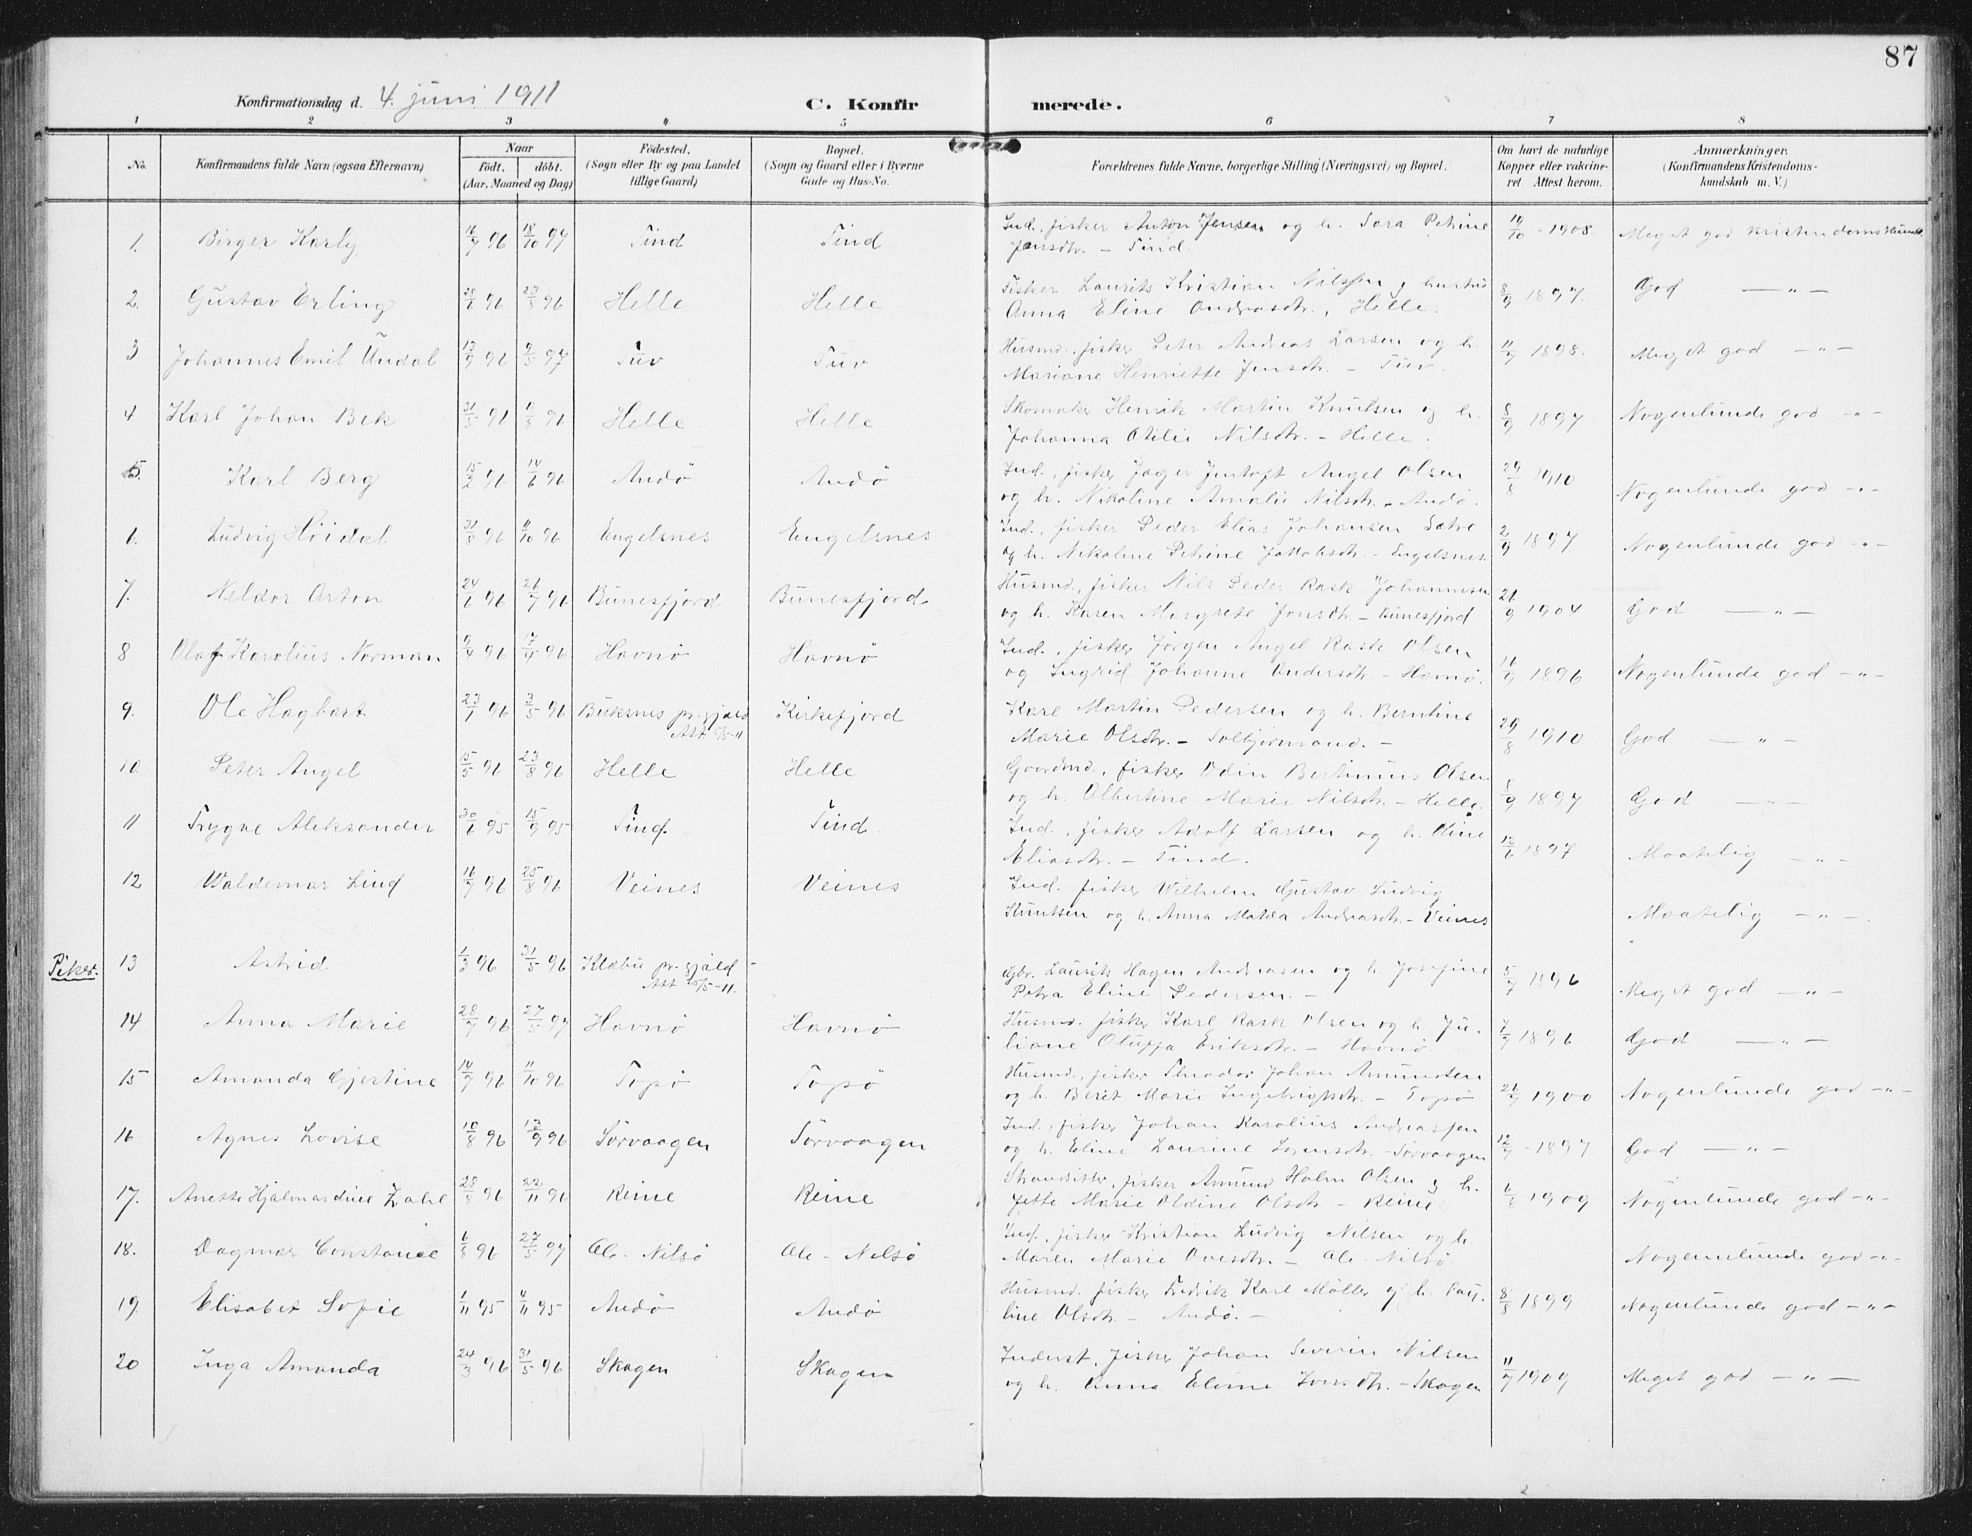 87
Konfirmationsdag d. 4. juni 1911
C. Konfirmerede.
1 2 3 4 5 6 7 8
No. Konfirmandens fulde Navn (ogsaa Efternavn) Naar Födt. döbt. (Aar, Maaned og Dag) Födested. (Sogn eller By og paa Landet tillige Gaard) Bopæl. (Sogn og Gaard eller i Byerne Gade og Hus-No. Forældrenes fulde Navne, borgerlige Stilling (Næringsvei) og Bopæl. Om havt de naturlige Kopper eller vaccineret. Attest herom. Anmærkninger. (Konfirmandens Kristendomskundskab m. V.)
1. Birger Karly 16/7 96 18/10 97 Tind Tind Ind. fisker Anton Jensen og h. Sara Petrine
Jensdtr. – Tind. 14/10 - 1908. Meget god Kristendomskundsk.
2. Gustav Erling 96 23/8 96 Helle Helle Fisker Laurits Kristian Nilsen og hustru
Anna Eline Andrasdtr., Helle. 8/9 1897. God — " —
3 Johannes Emil Undal 13/9 96 9/5 97 Tuv Tuv Husmd., fisker Peter Andreas Larsen og h.
Mariane Henriette Jensdtr. – Tuv. 11/9 1898. Meget god – " –
4 Karl Johan Bek 31/5 96 9/8 96 Helle Helle Skomaker Henrik Martin Knutsen og h.
Johanna Otilie Nilsdtr. – Helle. 8/9 1897 Nogenlunde god – " –
5. Karl Berg 15/2 96 14/6 96 Andö Andö Ind., fisker Jæger Jentoft Angel Olsen
og h. Nikoline Amalie Nilsdtr. – Andö. 29/8 1910 Nogenlunde god – " –
6. Ludvig Höidal 31/8 96 11/10 96 Engelsnes Engelsnes Ind., fisker Peder Elias Johansen Sætre
og h. Nikoline Petrine Jakobsdtr. – Engelsnes. 2/9 1897 Nogenlunde god – " –
7. Neldor Arton 24/6 96 26/7 96 Bunesfjord Bunesfjord Husmd., fisker Nils Peder Rask Johannesen
og h. Karen Margrete Jonsdtr. – Bunesfjord 21/9 1904 God — " —
8 Olaf Karolius Norman 9/4 96 96 Havnö Havnö Ind., fisker Jörgen Angel Rask Olsen
og Ingrid Johanne Andersdtr. – Havnö. 16/9 1896 Nogenlunde god – " –
9. Ole Hagbart 23/1 96 3/5 96 Buksnes pr.gjæld Kirkefjord Karl Martin Pedersen og h. Berntine
Att. 5/5-11 Marie Olsdtr. – – 29/8 1910 God — " —
10. Peter Angel 15/5 96 23/8 96 Helle Helle Gaardmd., fisker Odin Bertinius Olsen
og h. Albertine Marie Nilsdtr. – Helle. 8/9 1897 God — " —
11 Trygve Aleksander 30/6 95 15/9 95 Tind. Tind. Ind., fisker Adolf Larsen og h. Oline
Eliasdtr. – Tind. 12/6 1897 Maatelig – " –
12 Waldemar Lind 16/7 96 25/8 96 Veines Veines Ind. fisker Wilhelm Gustav Ludvig
Knutsen og h. Anna Matea Andreasdtr. – Veines Maatelig – " –
Piker. 13 Astrid 1/3 96 31/5 96 Klæbu pr.gjæld – Gbr. Laurits Hagen Andreasen og h. Josefine
Att 5/5-11. Petra Eline Pedersen. – 5/7 1896 Meget god – " –
14 Anna Marie 28/9 96 27/5 97 Havnö Havnö Husmd. fisker Karl Rask Olsen og h. Ju-
liane Oluffa Eriksdtr. – Havnö. 7/9 1896 God — " —
15 Amanda Gjertine 14/7 96 11/10 96 Topö Topö Husmd., fisker Theodor Johan Amundsen
og h. Beret Marie Ingebrigtsdtr. – Topö 26/9 1900 Nogenlunde god – " –
16 Agnes Lovise 10/8 96 13/9 96 Sörvaagen Sörvaagen Ind., fisker Johan Karolius Andreassen
og h. Eline Laurine Sörensdtr. – Sörvaagen 12/9 - 1897 God — " —
17. Anette Hjalmardine Zahl 28/8 96 22/11 96 Reine Reine Strandsitter, fisker Amund Holm Olsen og h.
Jette Marie Oldine Olsdtr – Reine. 6/8 1909 Nogenlunde god – " –
18. Dagmar Constance 6/8 96 27/5 97 Ole-Nilsö Ole-Nilsö Ind., fisker Kristian Ludvig Nilsen og h
Maren Marie Ovesdtr. – Ole-Nilsö Nogenlunde god – " –
19. Elisabet Sofie 1/11 95 4/11 95 Andö Andö Husmd. fisker Fredrik Karl Möller og h. Pau-
line Olsdtr – Andö. – 8/8 1899 Nogenlunde god – " –
20 Inga Amanda 24/3 96 31/5 96 Skagen Skagen Inderst, fisker Johan Severin Nilsen
og h. Anna Elvine Iversdtr. – Skagen 11/9 1909 Meget god – " –